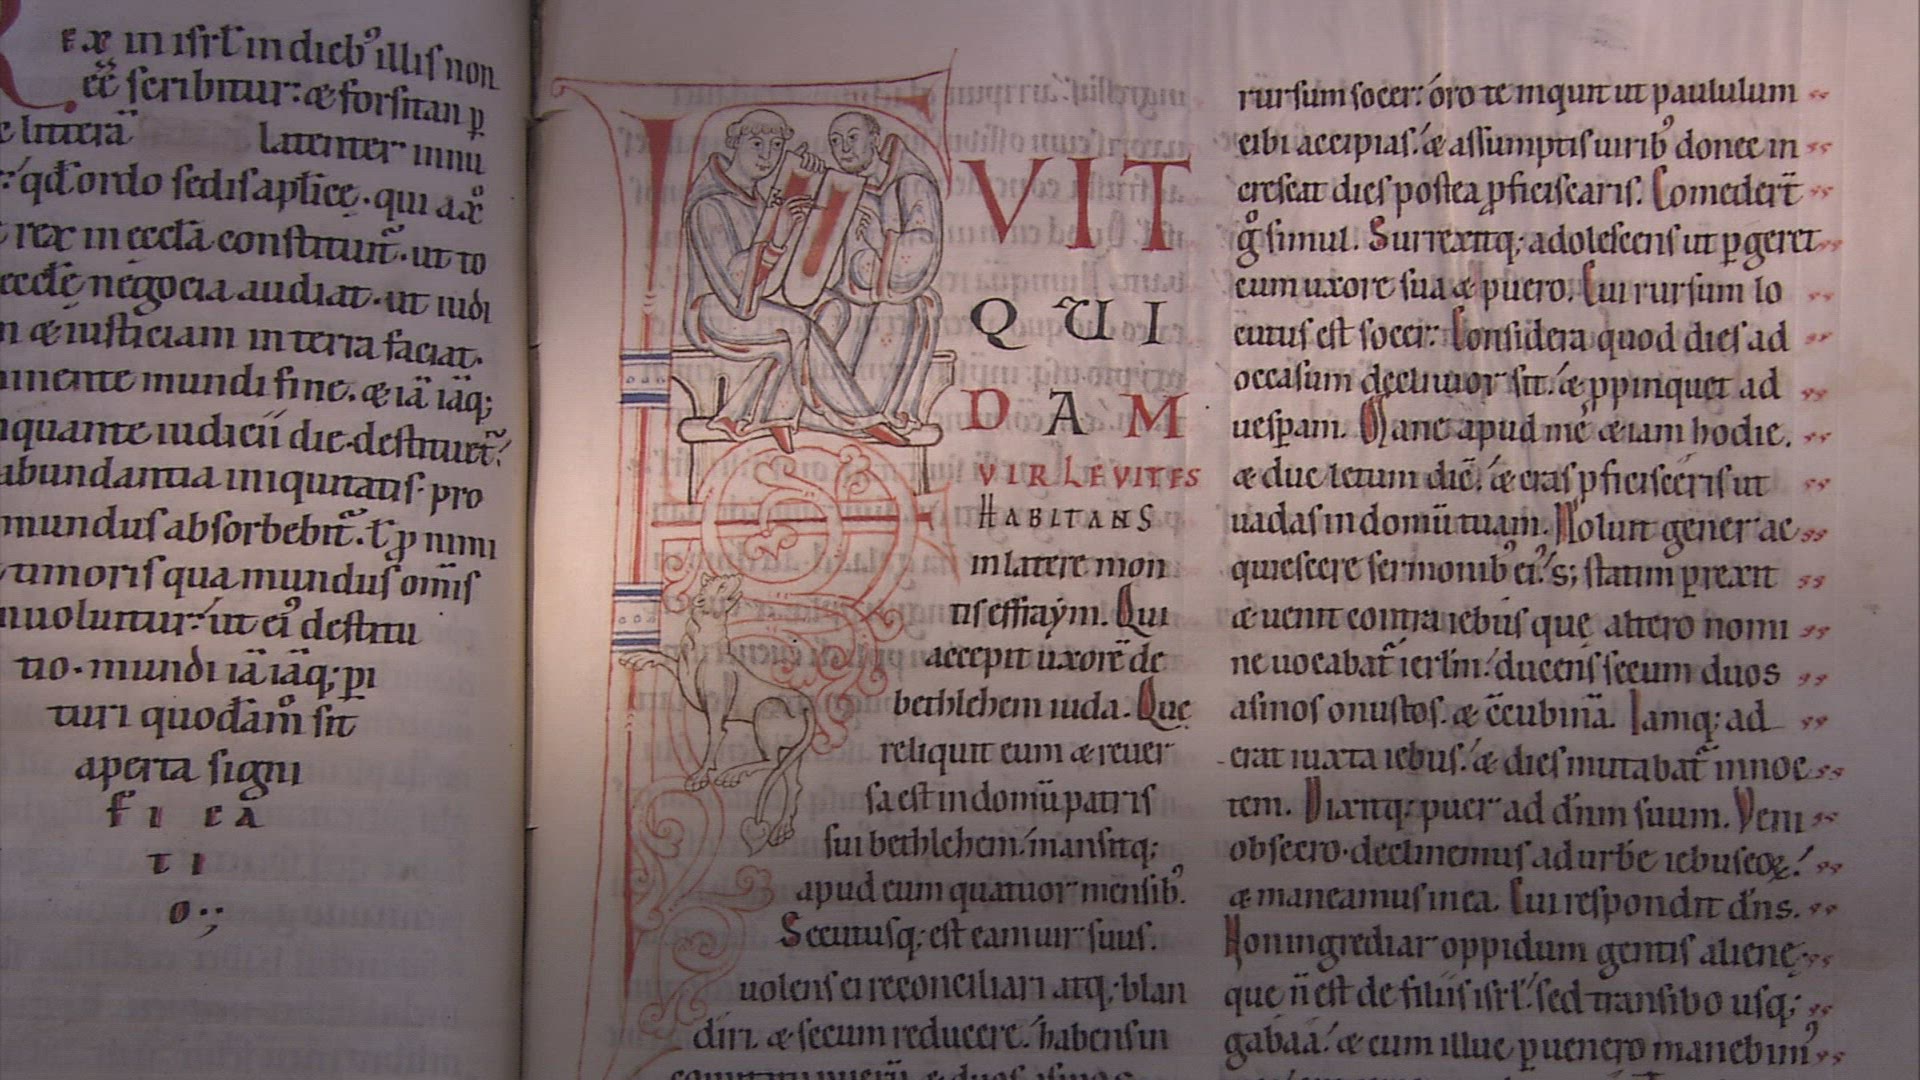 ex in isrł in dieb' illis non
eē scribitur: æ forsitan p
litterā latenter innu
qđ ordo sedis aplice. qui a x̊
rex in ecclā constituit̄. ut to
ecclę negocia audiat. ut iudi
æ iusticiam in terra faciat.
mundi fine. æ iā iāq;
iudicii die. destruet̄
abundantia iniquitatis. pro
mundus absorbebit̄. ł p nimi
timoris qua mundus omīs
uoluitur: ut ei' destru
tio. mundi iā iāq; pi
turi quodām sit
aperta signi
fica
ti
o.;
FVIT
QUI
DAM
VIR LEVITES
HABITANS
in latere mon
tis effraym. Qui
accepit uxorē de
bethlehem iuda. Quę
reliquit eum æ reuer
sa est in domū patris
sui bethlehem. mansitq;
apud eum quatuor mensib'.
Secutusq; est eam uir suus.
uolens ei reconciliari atq; blan
diri. æ secum reducere. habens in
comitatu puerū. æ duos asinos
rursum socer: oro te inquit ut paululum
cibi accipias. æ assumptis uirib' donec in
crescat dies postea pficiscaris. Comeder̄t
g̊ simul. Surrexitq; adolescens ut pgeret
cum uxore sua æ puero. Cui rursum lo
cutus est socer: Considera quod dies ad
occasum decliuior sit. æ ppinquet ad
uespam. Mane apud me æiam hodie.
æ duc lętum diē. æ cras pficisceris ut
uadas in domū tuam. Noluit gener ac
quiescere sermonib' ei'. s; statim prexit
æ uenit contra iebus que altero nomi
ne uocabat̄ ierłm. ducens secum duos
asinos onustos. æ c̄cubinā. Iamq; ad
erat iuxta iebus. æ dies mutabat̄ in noc
tem. Dixitq; puer ad dn̄m suum. Veni
obsecro. declinemus ad urbē iebuseoꝝ.
æ maneamus in ea. Cui respondit dn̄s.
Non ingrediar oppidum gentis alienę
que n̄ est de filiis isrł. sed transibo usq;
gabaā. æ cum illuc puenero manebim'